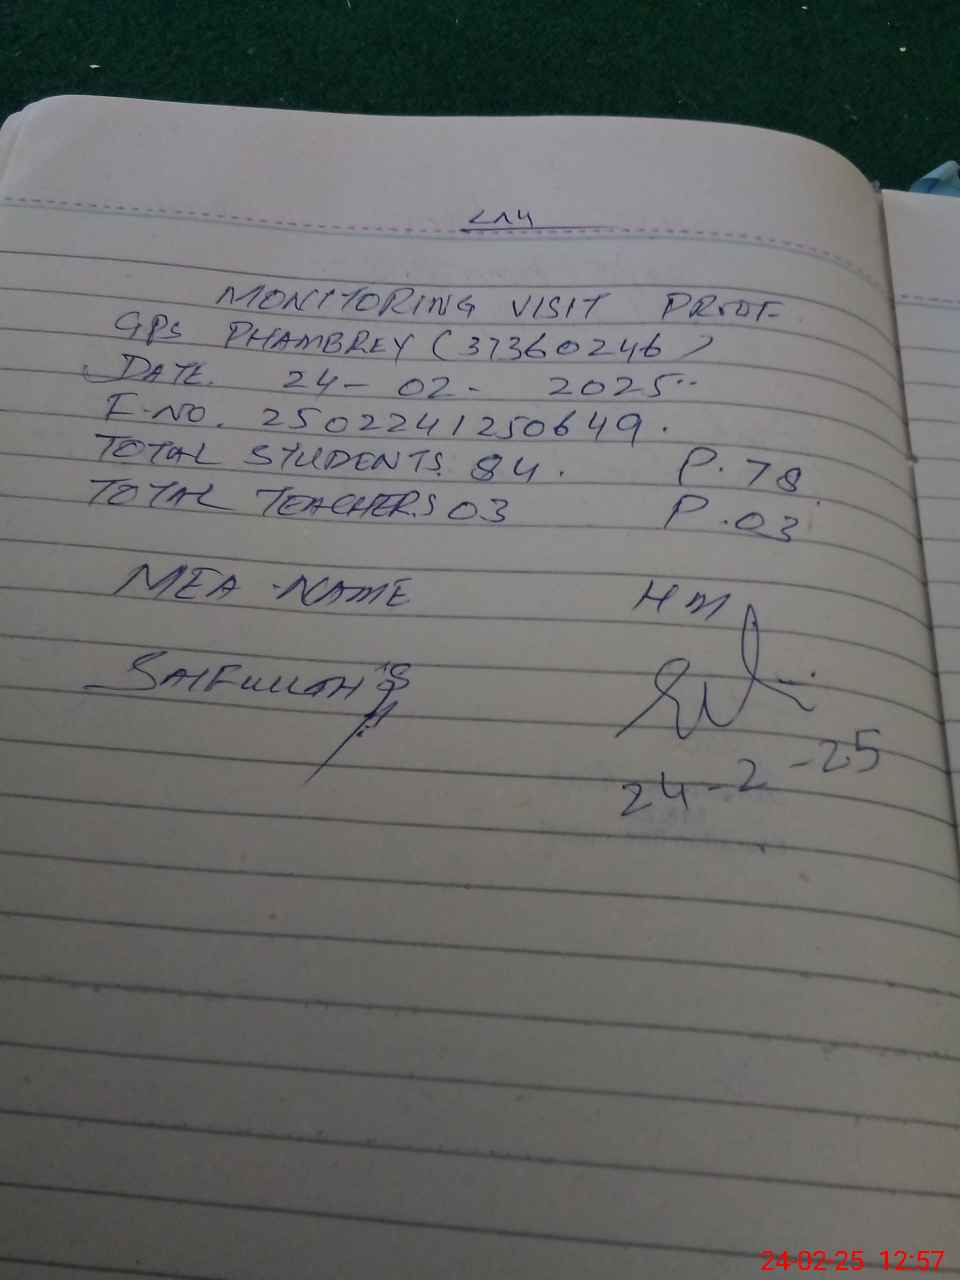 MONITORING VISIT PROOF
GPS PHAMBREY (37360246)
DATE. 24- 02- 2025..
F-NO. 2502241250649.
TOTAL STUDENTS. 84. P.78
TOTAL TEACHERS 03 P.03
MEA-NAME HM
SAIFULLAH
24-2-25
24-02-25 12:57